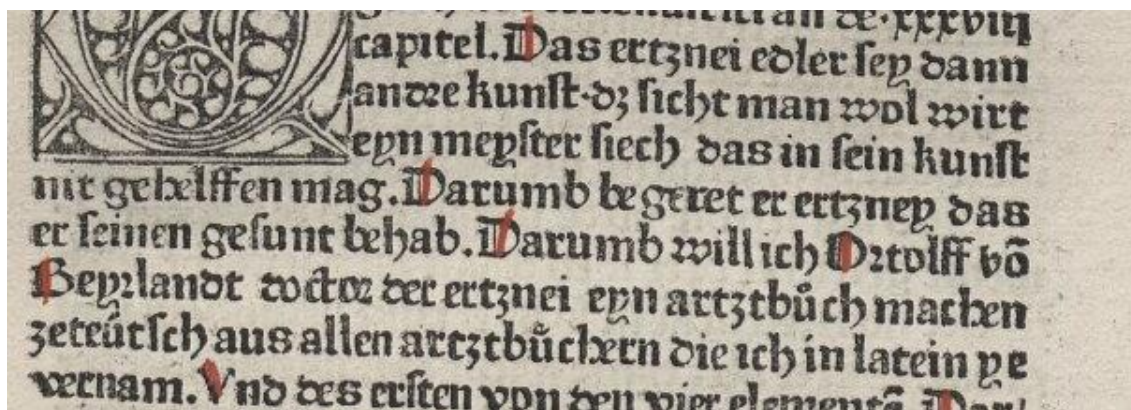 an de·xxxviii
capitel.Das ertznei edler sey dann
andre kunst·dz sicht man wol wirt
eyn meyster siech das in sein kunst
nit gehelffen mag.Darumb begeret er ertzney das
er seinen gesunt behab.Darumb will ich Ortolff võ
Beyrlandt doctor der ertznei eyn artztbůch machen
zeteůtsch aus allen artztbůchern die ich in latein ye
vernam.Vnd des ersten von den vier elementẽ.Dar/